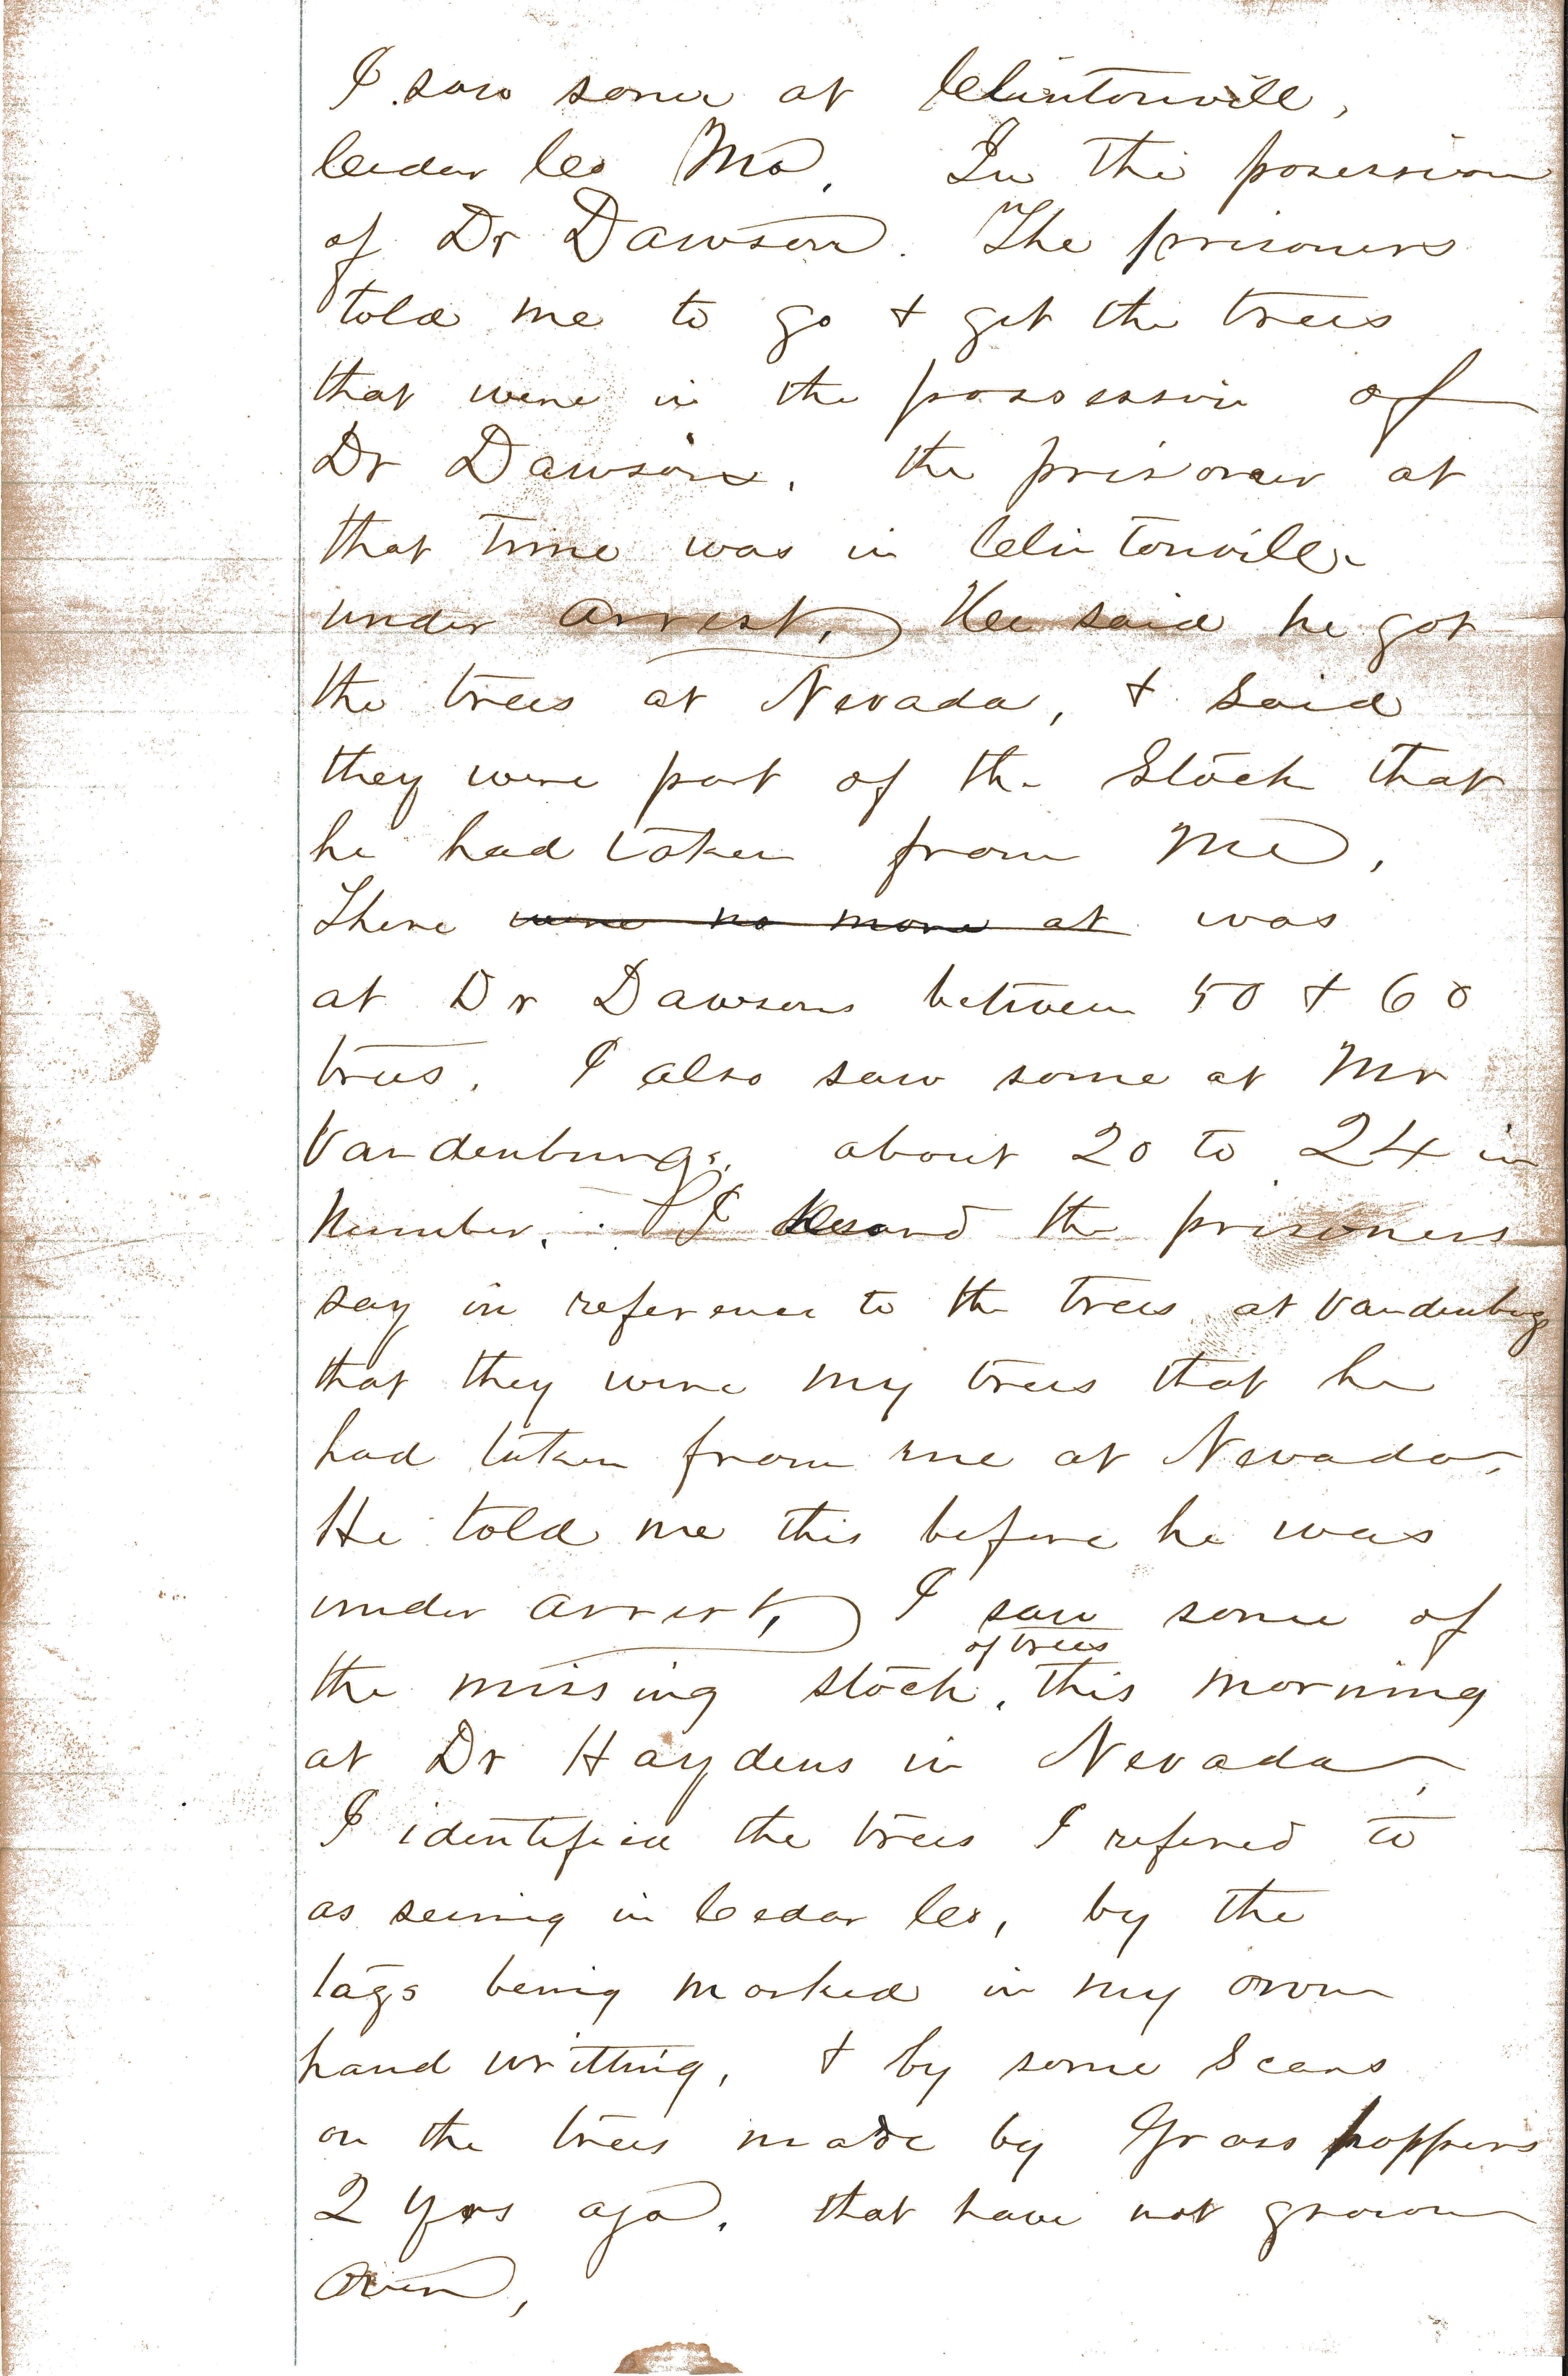 I saw some at Clintonvill,
Cedar Co Mo. In the posession
of Dr Dawson. The prisoners
told me to go & get the trees
that were in the possession of
Dr Dawson. the prisoner at
that time was in Clintonville
under arrest, He said he got
the trees at Nevada, & said
they were part of the Stock that
he had taken from me,
There were no more at was
at Dr Dawsons between 50 & 60
trees. I also saw some at Mr
Vandenburgs. about 20 to 24 in
Number. I heard the prisoners
say in reference to the trees at Vandenburgs
that they were my trees that he
had taken from me at Nevada,
He told me this before he was
under arrest, I saw some of
of trees
the missing stock, this morning
at Dr Haydens in Nevada,
I identified the trees I refered to
as seeing in Cedar Co, by the
tags being marked in my own
hand writting, & by some Scars
on the trees made by Grass hoppers
2 yrs ago, that have not grown
over,